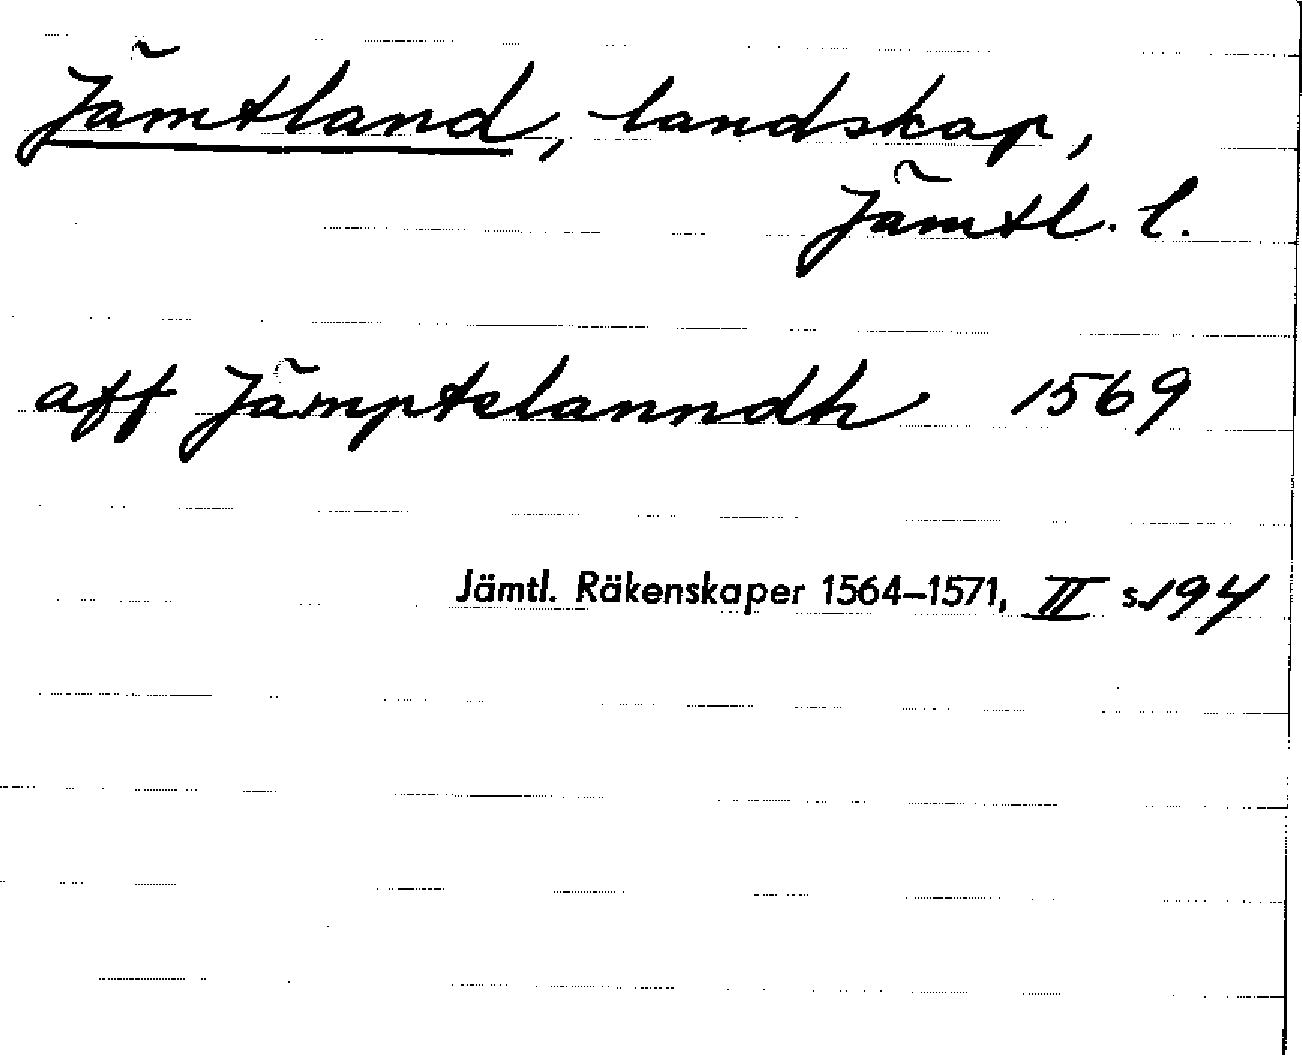 Jämtland, landskap,
Jämtl. l.
aff Jämptelanndh 1569
Jämtl. Räkenskaper 1564–1571, II s. 194